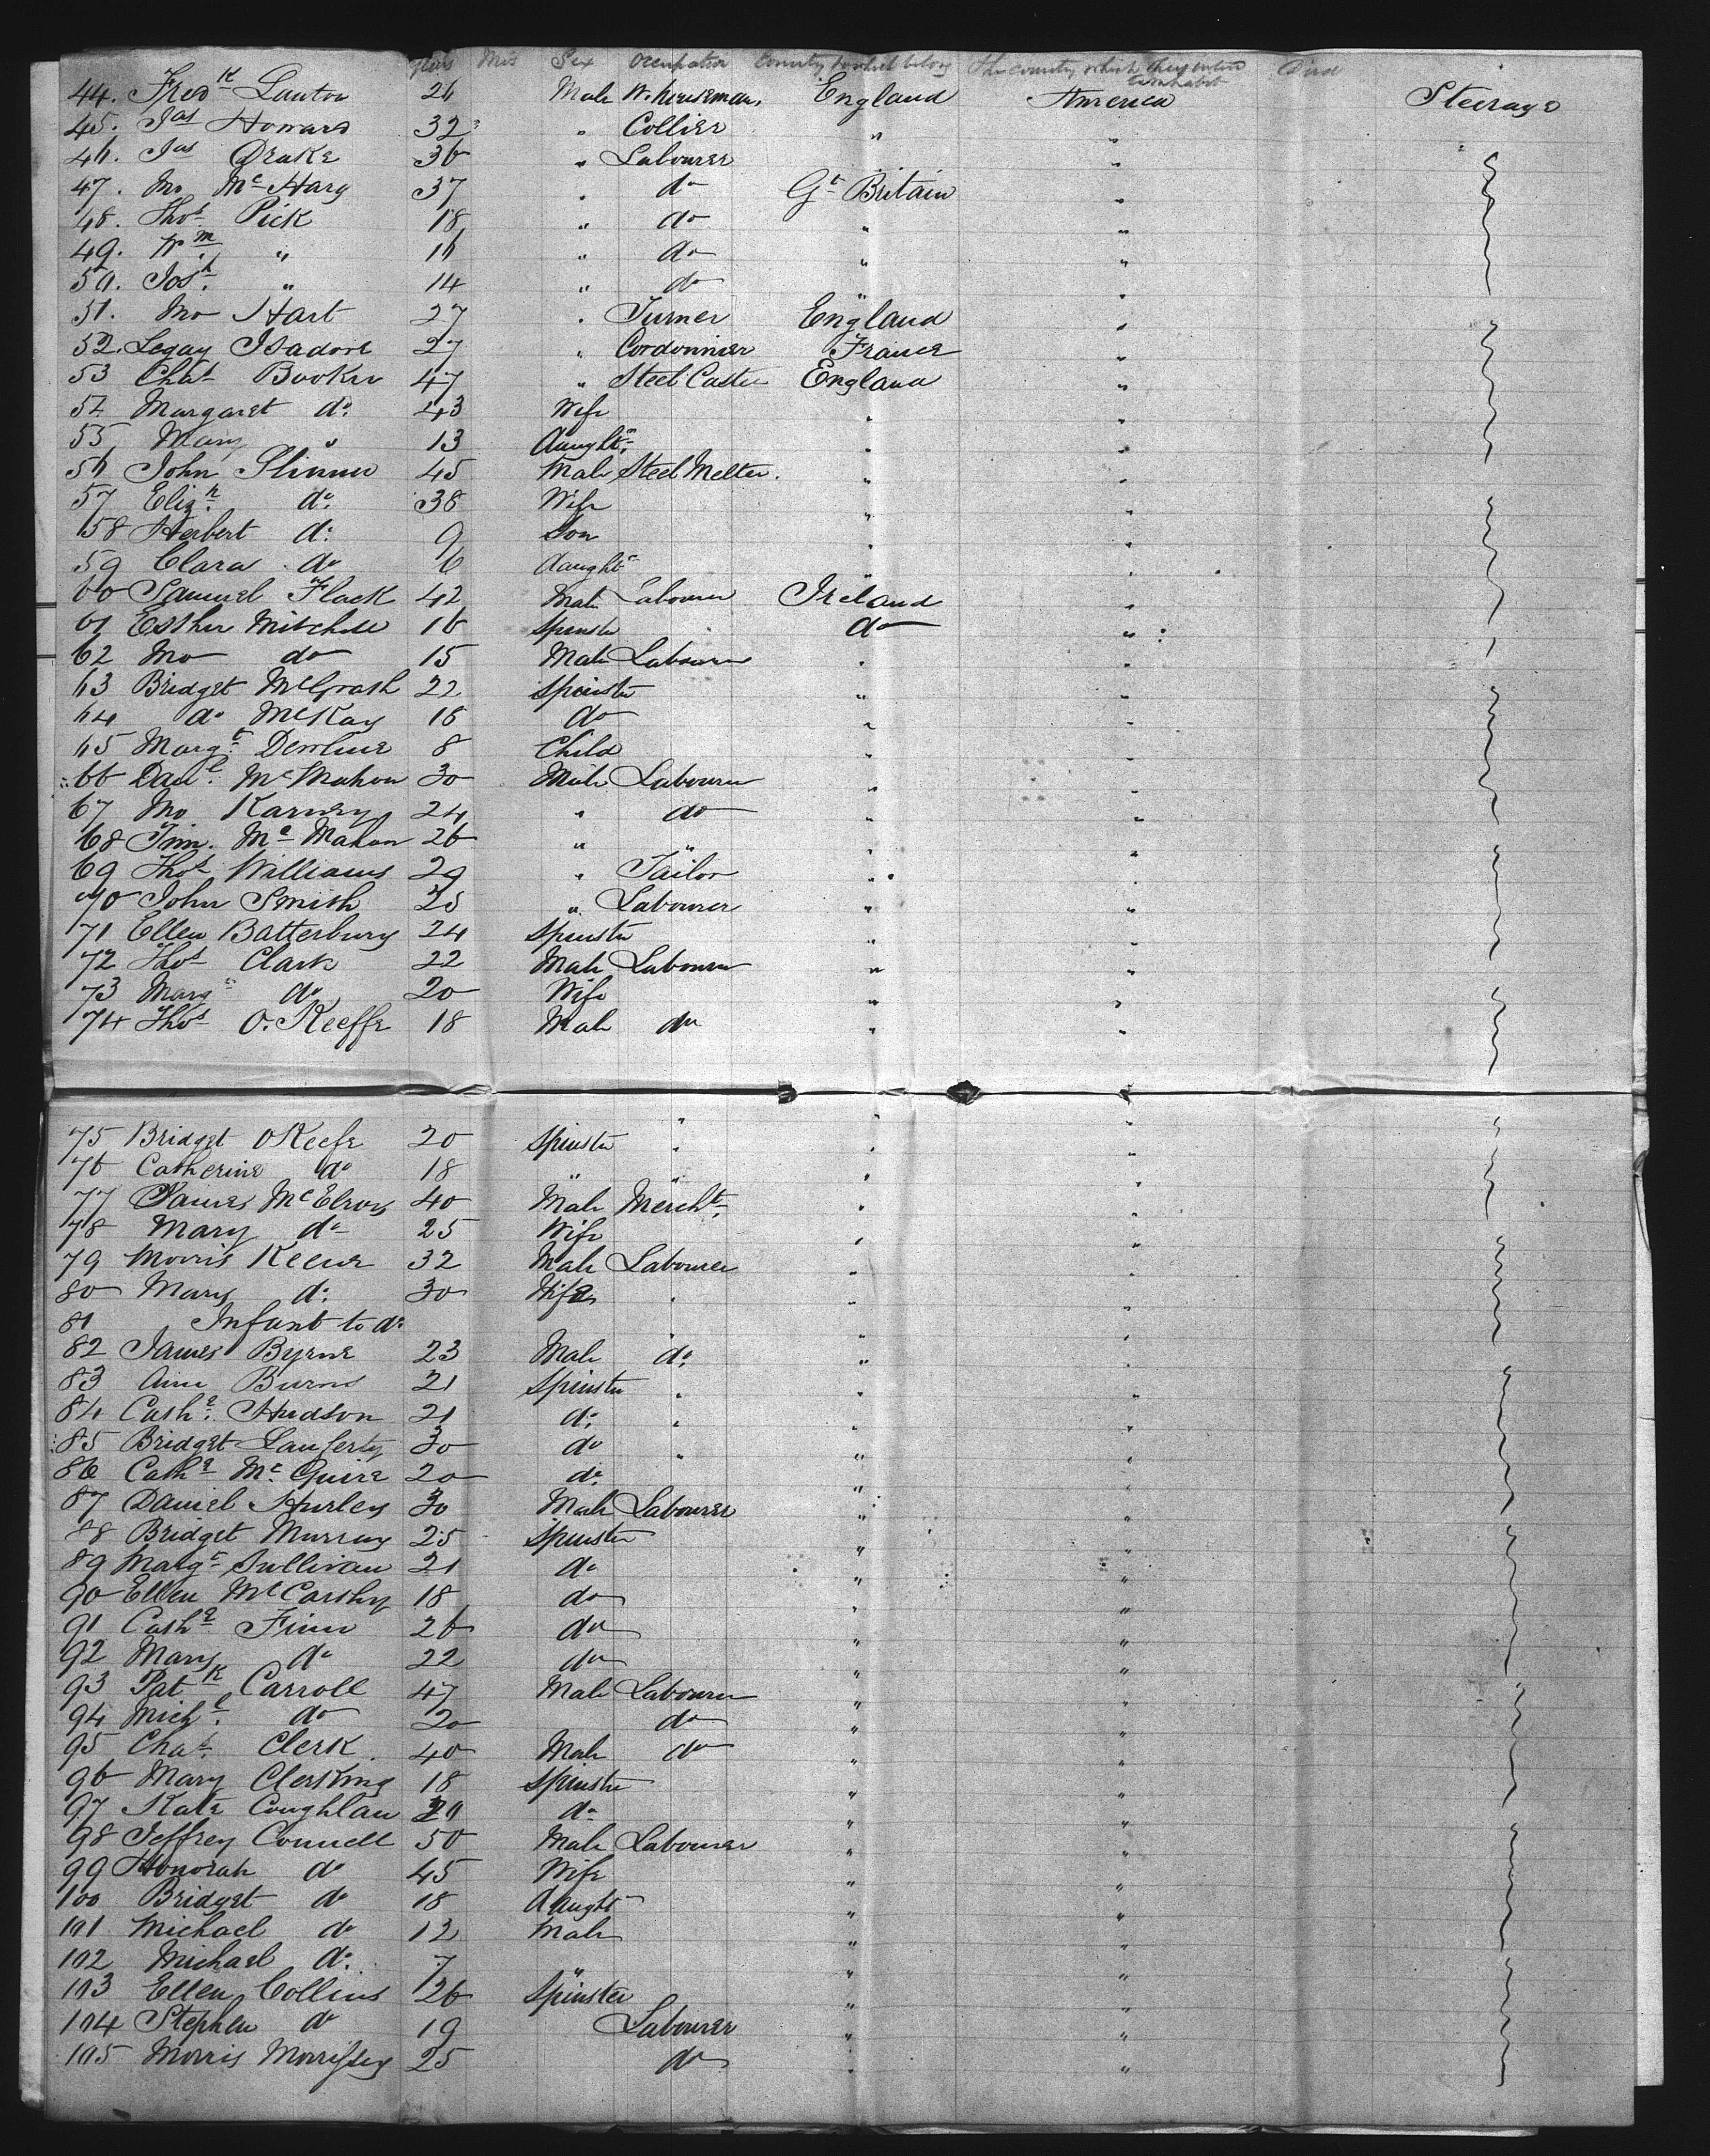 Years Mos Sex Occupation Country to which belong The country which they intend to inhabit Died
44. Fredk Lauton 26 Male W.houseman England America Steerage
45. Jas Howard 32 " Collier " "
46. Jas Drake 36 " Labourer "
47. Jno McHarg 37 " do Gt Britain "
48. Thos Pick 18 " do " "
49. Wm " 16 " do " "
50. Josh " 14 " do " "
51. Jno Hart 27 " Turner England "
52. Legay Isadore 27 " Cordonnier France "
53 Chas Booker 47 " Steel Caster England "
54 Margaret do 43 Wife " "
55 Mary " 13 daughtr " "
56 John Skinner 45 Male Steel Melter. " "
57 Elizh do 38 Wife " "
58 Herbert do 9 Son " "
59 Clara do 6 daught " "
60 Samuel Flack 42 Male Labourer Ireland "
61 Esther Mitchell 16 Spinster do "
62 Jno do 15 Male Labourer " "
63 Bridget McGrath 22 Spinster " "
64 do McKay 18 do " "
65 Margt 8 Child " "
66 Danl McMahon 30 Male Labourer " "
67 Jno Karney 24 " do " "
68 Tim. McMahon 26 " " " "
69 Thos Williams 29 " Tailor " "
70 John Smith 25 " Labourer " "
71 Ellen Batterbury 24 Spinster " "
72 Thos Clark 22 Male Labourer " "
73 Margt do 20 Wife " "
74 Thos O.Keeffe 18 Male do " "
75 Bridget OKeefe 20 Spinster " " "
76 Catherine do 18 " " " "
77 James McElroy 40 Male Mercht " "
78 Mary do 25 Wife " "
79 Morris Keene 32 Male Labourer " "
80 Mary do 30 Wife " " "
81 Infant to do " "
82 James Byrne 23 Male do " "
83 Ann Burns 21 Spinster " "
84 Cathe Hudson 21 do " "
85 Bridget Lauferty 30 do " " "
86 Cathe McGuire 20 do " "
87 Daniel Hurley 30 Male Labourer " "
88 Bridget Murray 25 Spinster " "
89 Margt Sullivan 21 do " "
90 Ellen McCarthy 18 do " "
91 Cathe Finn 26 do " "
92 Mary do 22 do " "
93 Patk Carroll 47 Male Labourer " "
94 Michl do 20 do " "
95 Chas Clerk 40 Male do " "
96 Mary Clerking 18 Spinster " "
97 Kate Coughlan 20 do " "
98 Jeffrey Connell 50 Male Labourer " "
99 Honorah do 45 Wife " "
100 Bridget do 18 daught " "
101 Michael do 12 Male " "
102 Michael do 7 " " "
103 Ellen Collins 26 Spinster " "
104 Stephen do 19 Labourer " "
105 Morris Morrissey 25 do " "